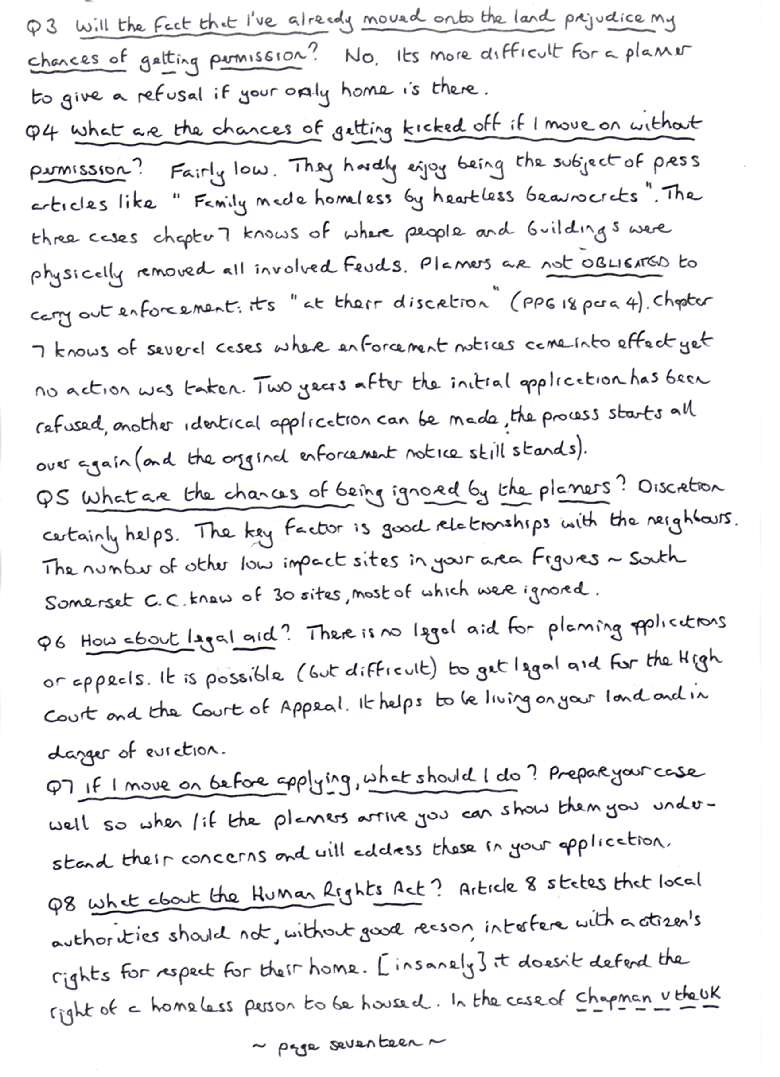 Q3 Will the fact that I've already moved onto the land prejudice my
chances of getting permission? No. Its more difficult for a planner
to give a refusal if your only home is there.
Q4 What are the chances of getting kicked off if I move on without
permission? Fairly low. They hardly enjoy being the subject of press
articles like "Family made homeless by heartless beaurocrats". The
three cases chapter 7 knows of where people and buildings were
physically removed all involved feuds. Planners are not OBLIGATED to
carry out enforcement: its "at their discretion" (PPG 18 para 4). Chapter
7 knows of several cases where enforcement notices came into effect yet
no action was taken. Two years after the initial application has been
refused, another identical application can be made, the process starts all
over again (and the original enforcement notice still stands).
Q5 What are the chances of being ignored by the planners? Discretion
certainly helps. The key factor is good relationships with the neighbours.
The number of other low impact sites in your area figures ~ South
Somerset C.C. knew of 30 sites, most of which were ignored.
Q6 How about legal aid? There is no legal aid for planning applications
or appeals. It is possible (but difficult) to get legal aid for the High
Court and the Court of Appeal. It helps to be living on your land and in
danger of eviction.
Q7 If I move on before applying, what should I do? Prepare your case
well so when/if the planners arrive you can show them you under-
stand their concerns and will address these in your application.
Q8 What about the Human Rights Act? Article 8 states that local
authorities should not, without good reason, interfere with a citizen's
rights for respect for their home. [insanely] it doesn't defend the
right of a homeless person to be housed. In the case of Chapman v the UK
~ page seventeen ~